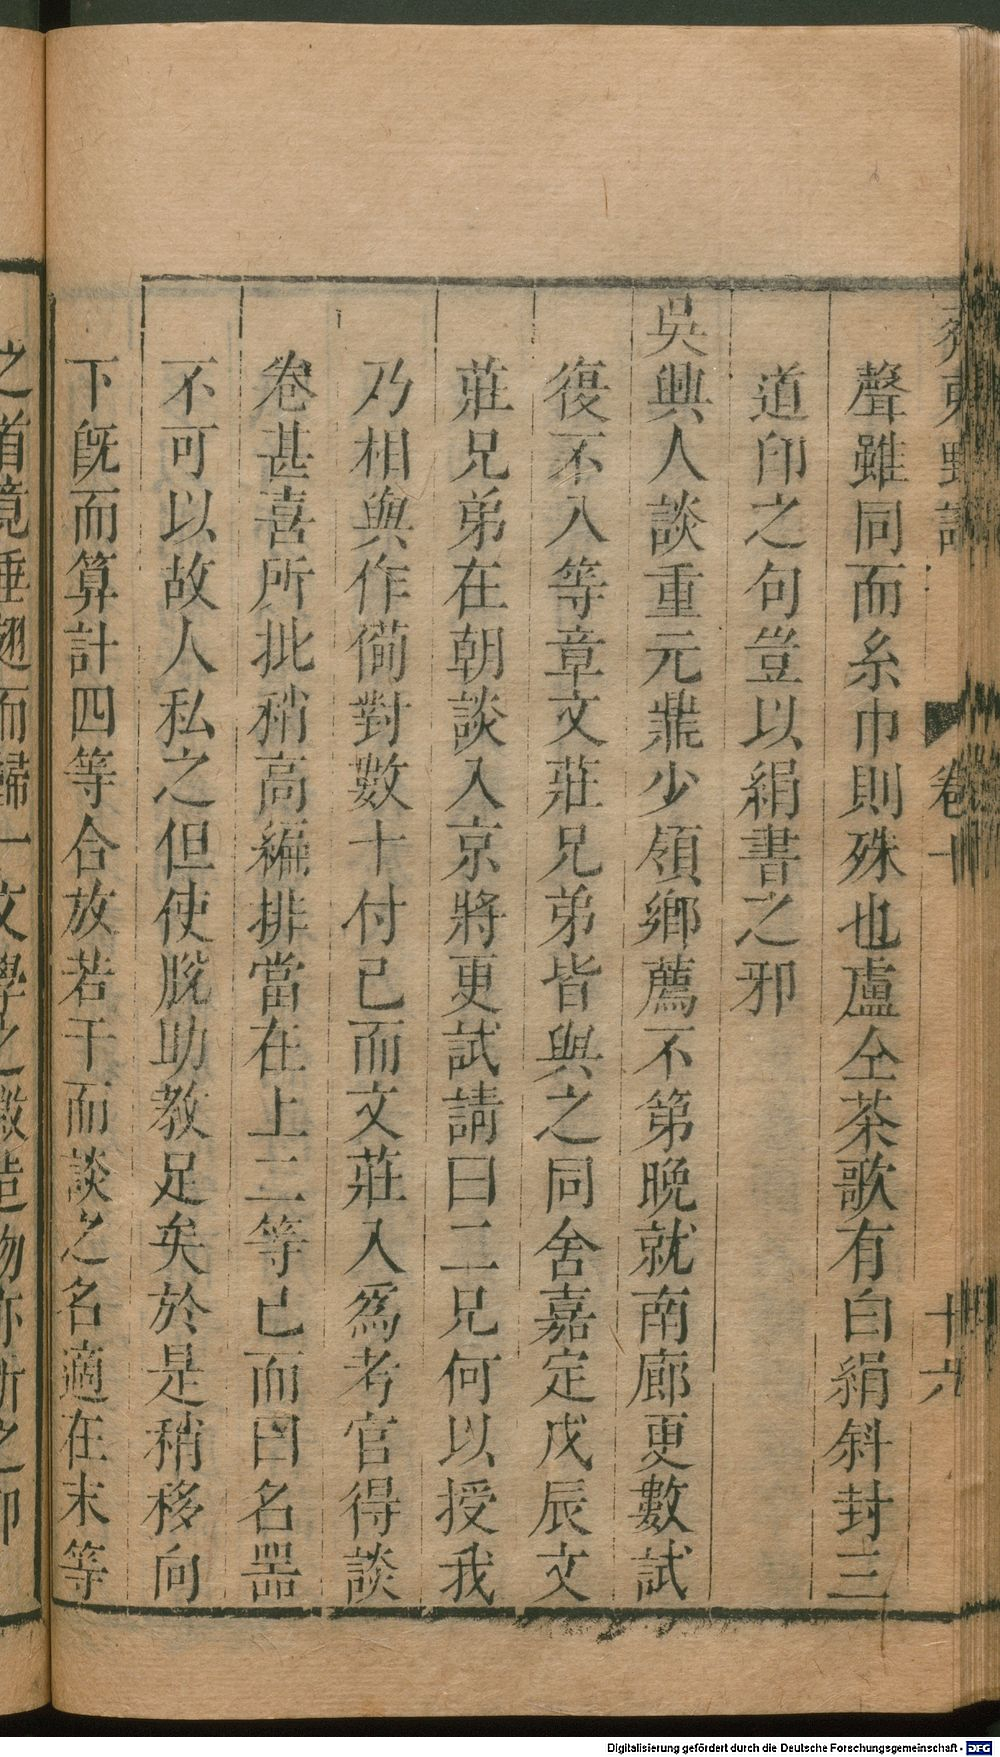 齊東野語
卷十
十六
聲雖同而糸巾則殊也盧仝茶歌有白絹斜封三
道印之句豈以絹書之邪
吳興人談重元鼎少領鄉薦不第晚就南廊更數試
復不入等章文莊兄弟皆與之同舍嘉定戊辰文
莊兄弟在朝談入京將更試請曰二兄何以授我
乃相與作僩對數十付已而文莊入爲考官得談
卷甚喜所批稍高編排當在上二等已而曰名噐
不可以故人私之但使脫助教足矣於是稍移向
下旣而算計四等合放若干而談之名適在末等
之道竟垂翅而歸一文學之
造物亦
Digitalisierung gefördert durch die Deutsche Forschungsgemeinschaft - DFG